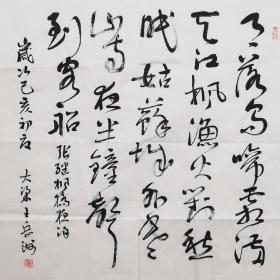 月落乌啼霜满
天江枫渔火对愁
眠姑苏城外寒
山寺夜半钟声
到客船 张继枫桥夜泊
岁次己亥初夏 大梁王岳